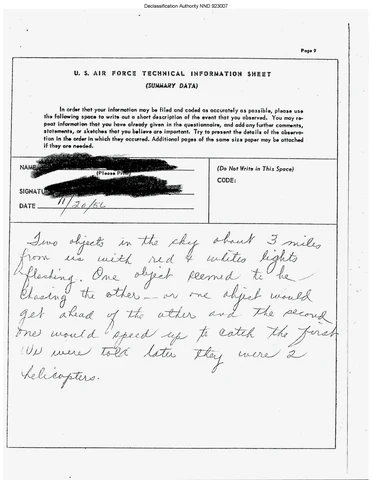 Declassification Authority NND 923007
Page 9
U. S. AIR FORCE TECHNICAL INFORMATION SHEET
(SUMMARY DATA)
In order that your information may be filed and coded as accurately as possible, please use
the following space to write out a short description of the event that you observed. You may re-
peat information that you have already given in the questionnaire, and add any further comments,
statements, or sketches that you believe are important. Try to present the details of the observa-
tion in the order in which they occurred. Additional pages of the same size paper may be attached
if they are needed.
NAME
(Please Print)
(Do Not Write in This Space)
CODE:
SIGNATU
DATE 11/20/56
Two objects in the sky about 3 miles
from us with red & whites lights
flashing. One object seemed to be
chasing the other — or one object would
get ahead of the other and the second
one would speed up to catch the first
We were told later they were 2
helicopters.